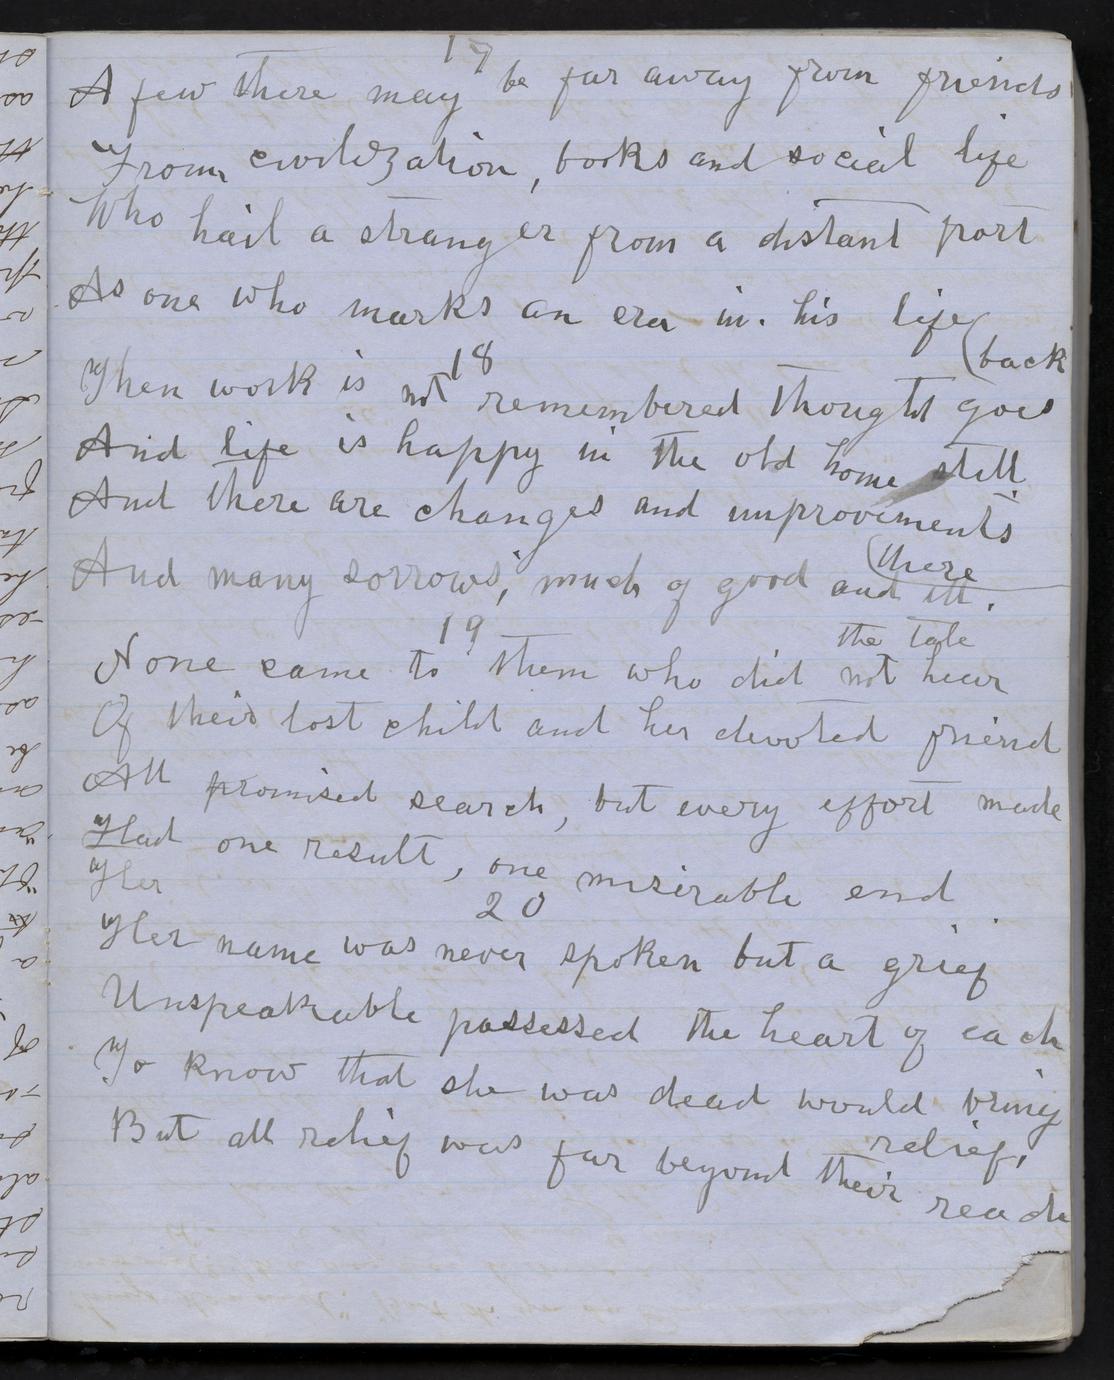 17
A few there may be far away from friends
From civilization, books and social life
Who hail a stranger from a distant port
As one who marks an era in his life
18
(back
When work is not remembered thought goes
And life is happy in the old home still
And there are changes and improvements
(there
And many sorrows, much of good and ill.
19
the tale
None came to them who did not hear
Of their lost child and her devoted friend
All promised search, but every effort made
Had one result, one misirable end
Her
20
Her name was never spoken but a grief
Unspeakable possessed the heart of each
To know that she was dead would bring
relief,
But all relief was far beyond their reach